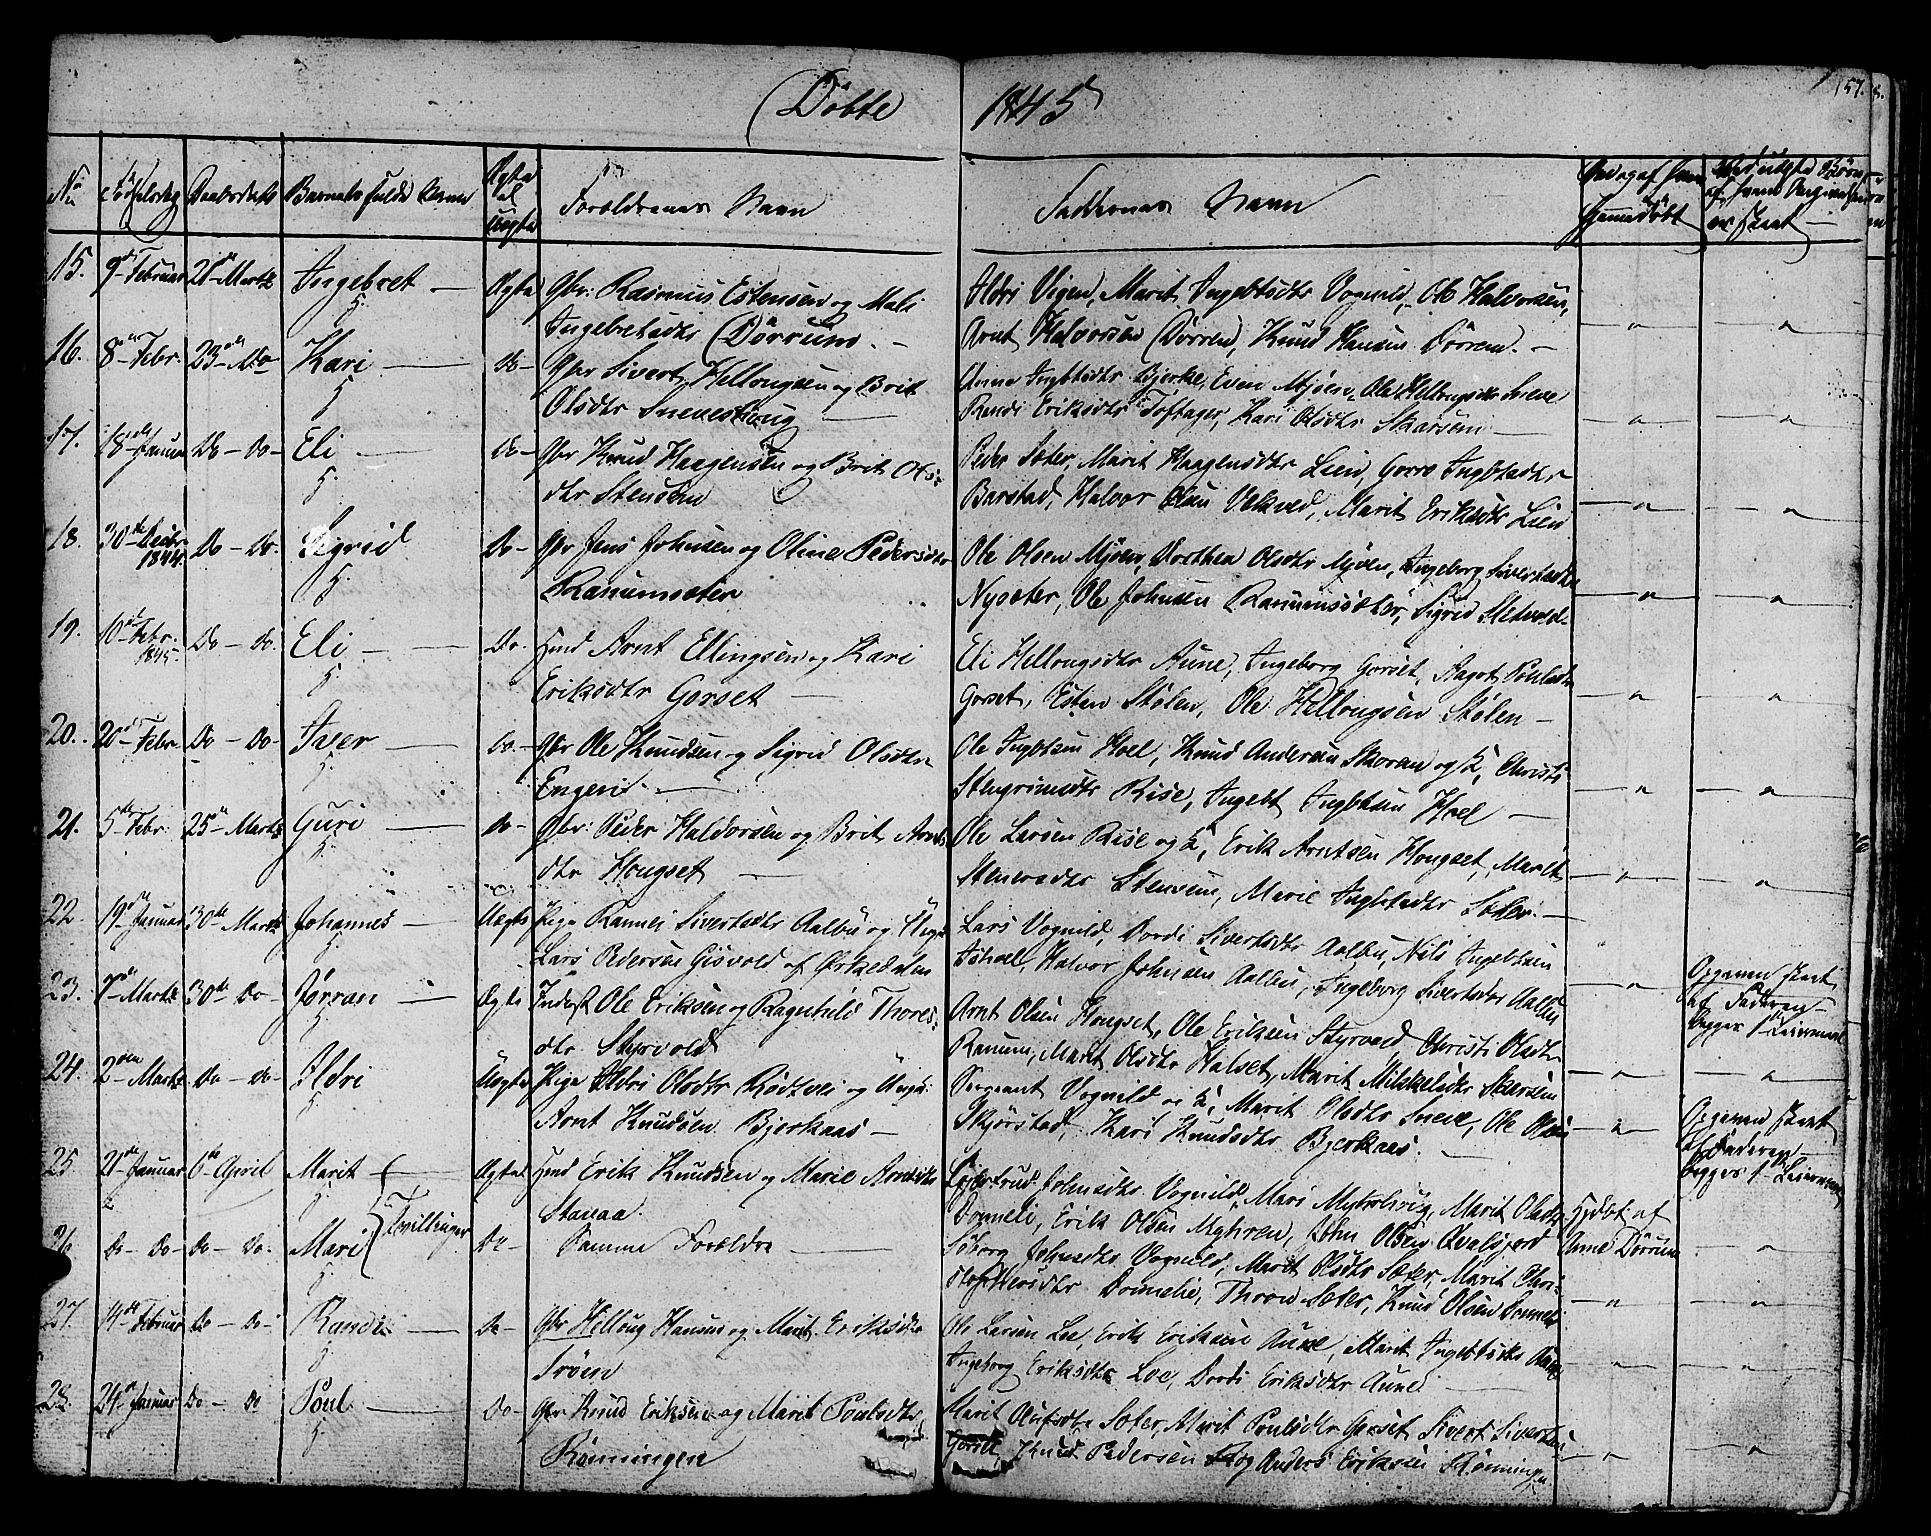 Döbte 1845
157.
No Födselsdag Daabsdato Barnets fulde Navn Ægte el. Uægte Forældrenes Navn Faddernes Navn
15. 9de Februar 21de Marts Ingebret Ægte Gbr. Rasmus Estensen og Mali
Ingebretsdtr Dörrum.
Aldri Vigen, Marit Ingebtsdtr Vognild, Ole Halvorsen,
Arnt Halvorsen Dörren, Knud Hansen Dörrem.
16. 8de Febr. 23de Do Kari Do Gbr Sivert Hellougsen og Brit
Olsdtr Sneveshoug
Anne Ingbtsdtr Bjerke, Even Mjöen, Ole Hellougsen Sneve
Randi Eriksdtr Toftager, Kari Olsdtr Skarsem
17. 18de Januar Do Do Eli Do Gbr Knud Haagensen og Brit Ols:
dtr Stensem
Peder Sæter, Marit Haagensdtr Lien, Goro Ingbtsdtr
Barstad, Halvor Olsen Vekved, Marit Eriksdtr Lien
18. 30de Decbr 1844. Do Do Sigrid Do Gbr Jens Johnsen og Oline Pedersdtr
Ranumsæter
Ole Olsen Mjöen, Dorthea Olsdtr Mjöen, Ingeborg Sivertsdtr
Nysæter, Ole Johnsen Ranumsæter, Sigrid Sletvold
19. 10de Febr. 1845. Do Do Eli Do Hmd Arnt Ellingsen og Kari
Eriksdtr Gorset
Eli Hellougsdtr Aune, Ingeborg Gorset, Ragot Poulsdtr
Gorset, Esten Stölen, Ole Hellougsen Stölen
20. 20de Febr. Do Do Iver Do Gbr Ole Knudsen og Sigrid Olsdtr
Engen
Ole Ingbtsen Hoel, Knud Andersen Skoran og K, Christi
Stengrimsdtr Rise, Ingebt Ingbtsen Hoel
21. 5de Febr. 25de Marts Guri Do Gbr: Peder Haldorsen og Brit Arnts
dtr Hougset
Ole Larsen Rise og K, Erik Arntsen Hougset, Marit
Stenersdtr Stensem, Marie Ingbtsdtr Sæter.
22 19de Januar 30de Marts Johannes Uægte Pige Rannei Sivertsdtr Aalbu og Ungk.
Lars Pedersen Gisvold af Ørkedalen
Lars Vognild, Dordi Sivertsdtr Aalbu, Nils Ingebtsen
Halvor Johnsen Aalbu, Ingeborg Sivertsdtr Aalbu
Opgaven skeet
af Faderen
begges 1ste Leiermaal
23. 7de Marts 30de Do Jörran Ægte Inderst Ole Eriksen og Ragnhild Thores:
dtr Styrvold
Arnt Olsen Hougset, Ole Eriksen Styrvold Christi Olsdtr
Ranum, Marit Olsdtr Halset, Marit Mikkelsdtr Skarsem
24. 2den Marts Do Do Aldri Uægte Pige Aldri Olsdtr Rödtvei og Ungk:
Arnt Knudsen Bjerkaas
Sergeant Vognild og K, Marit Olsdtr Sneve, Ole Olsen
Skjörstad, Kari Knudsdtr Bjerkaas.
Opgaven skeet
af Faderen
begges 1ste Leiermaal
25. 21de Januar 6te April Marit Ægte Hmd Erik Knudsen og Marie Arntsdtr
Stanaa.
Gjertrud Johnsdtr Vognild, Mari Marit Olsdtr
Donneli, Erik Olsen Myhren, John Olsen
Hjdöbt af
Anne Dörrum
26. Do Do Do Do Mari Tvillinger Do Samme Forældre
Söborg Johnsdtr Vognild, Marit Olsdtr Sæter, Marit Chri-
stophersdtr Donnelie, Thron Sæter, Knud Olsen Donneli
27. 14de Februar Do Do Randi Do Gbr Helloug Hansen og Marit Eriksdtr
Tröen
Ole Larsen Loe, Erik Eriksen Aune, Marit Ingebtsdtr
Ingeborg Eriksdtr Loe, Dordi Eriksdtr Aune
28. 24de Januar Do Do Poul Do Gbr Knud Eriksen og Marit Poulsdtr
Rönningen
Marit Sæter, Marit Poulsdtr Gorset, Sivert Sivertsen
Gorset, Knud Pedersen og Anders Eriksen Rönningen